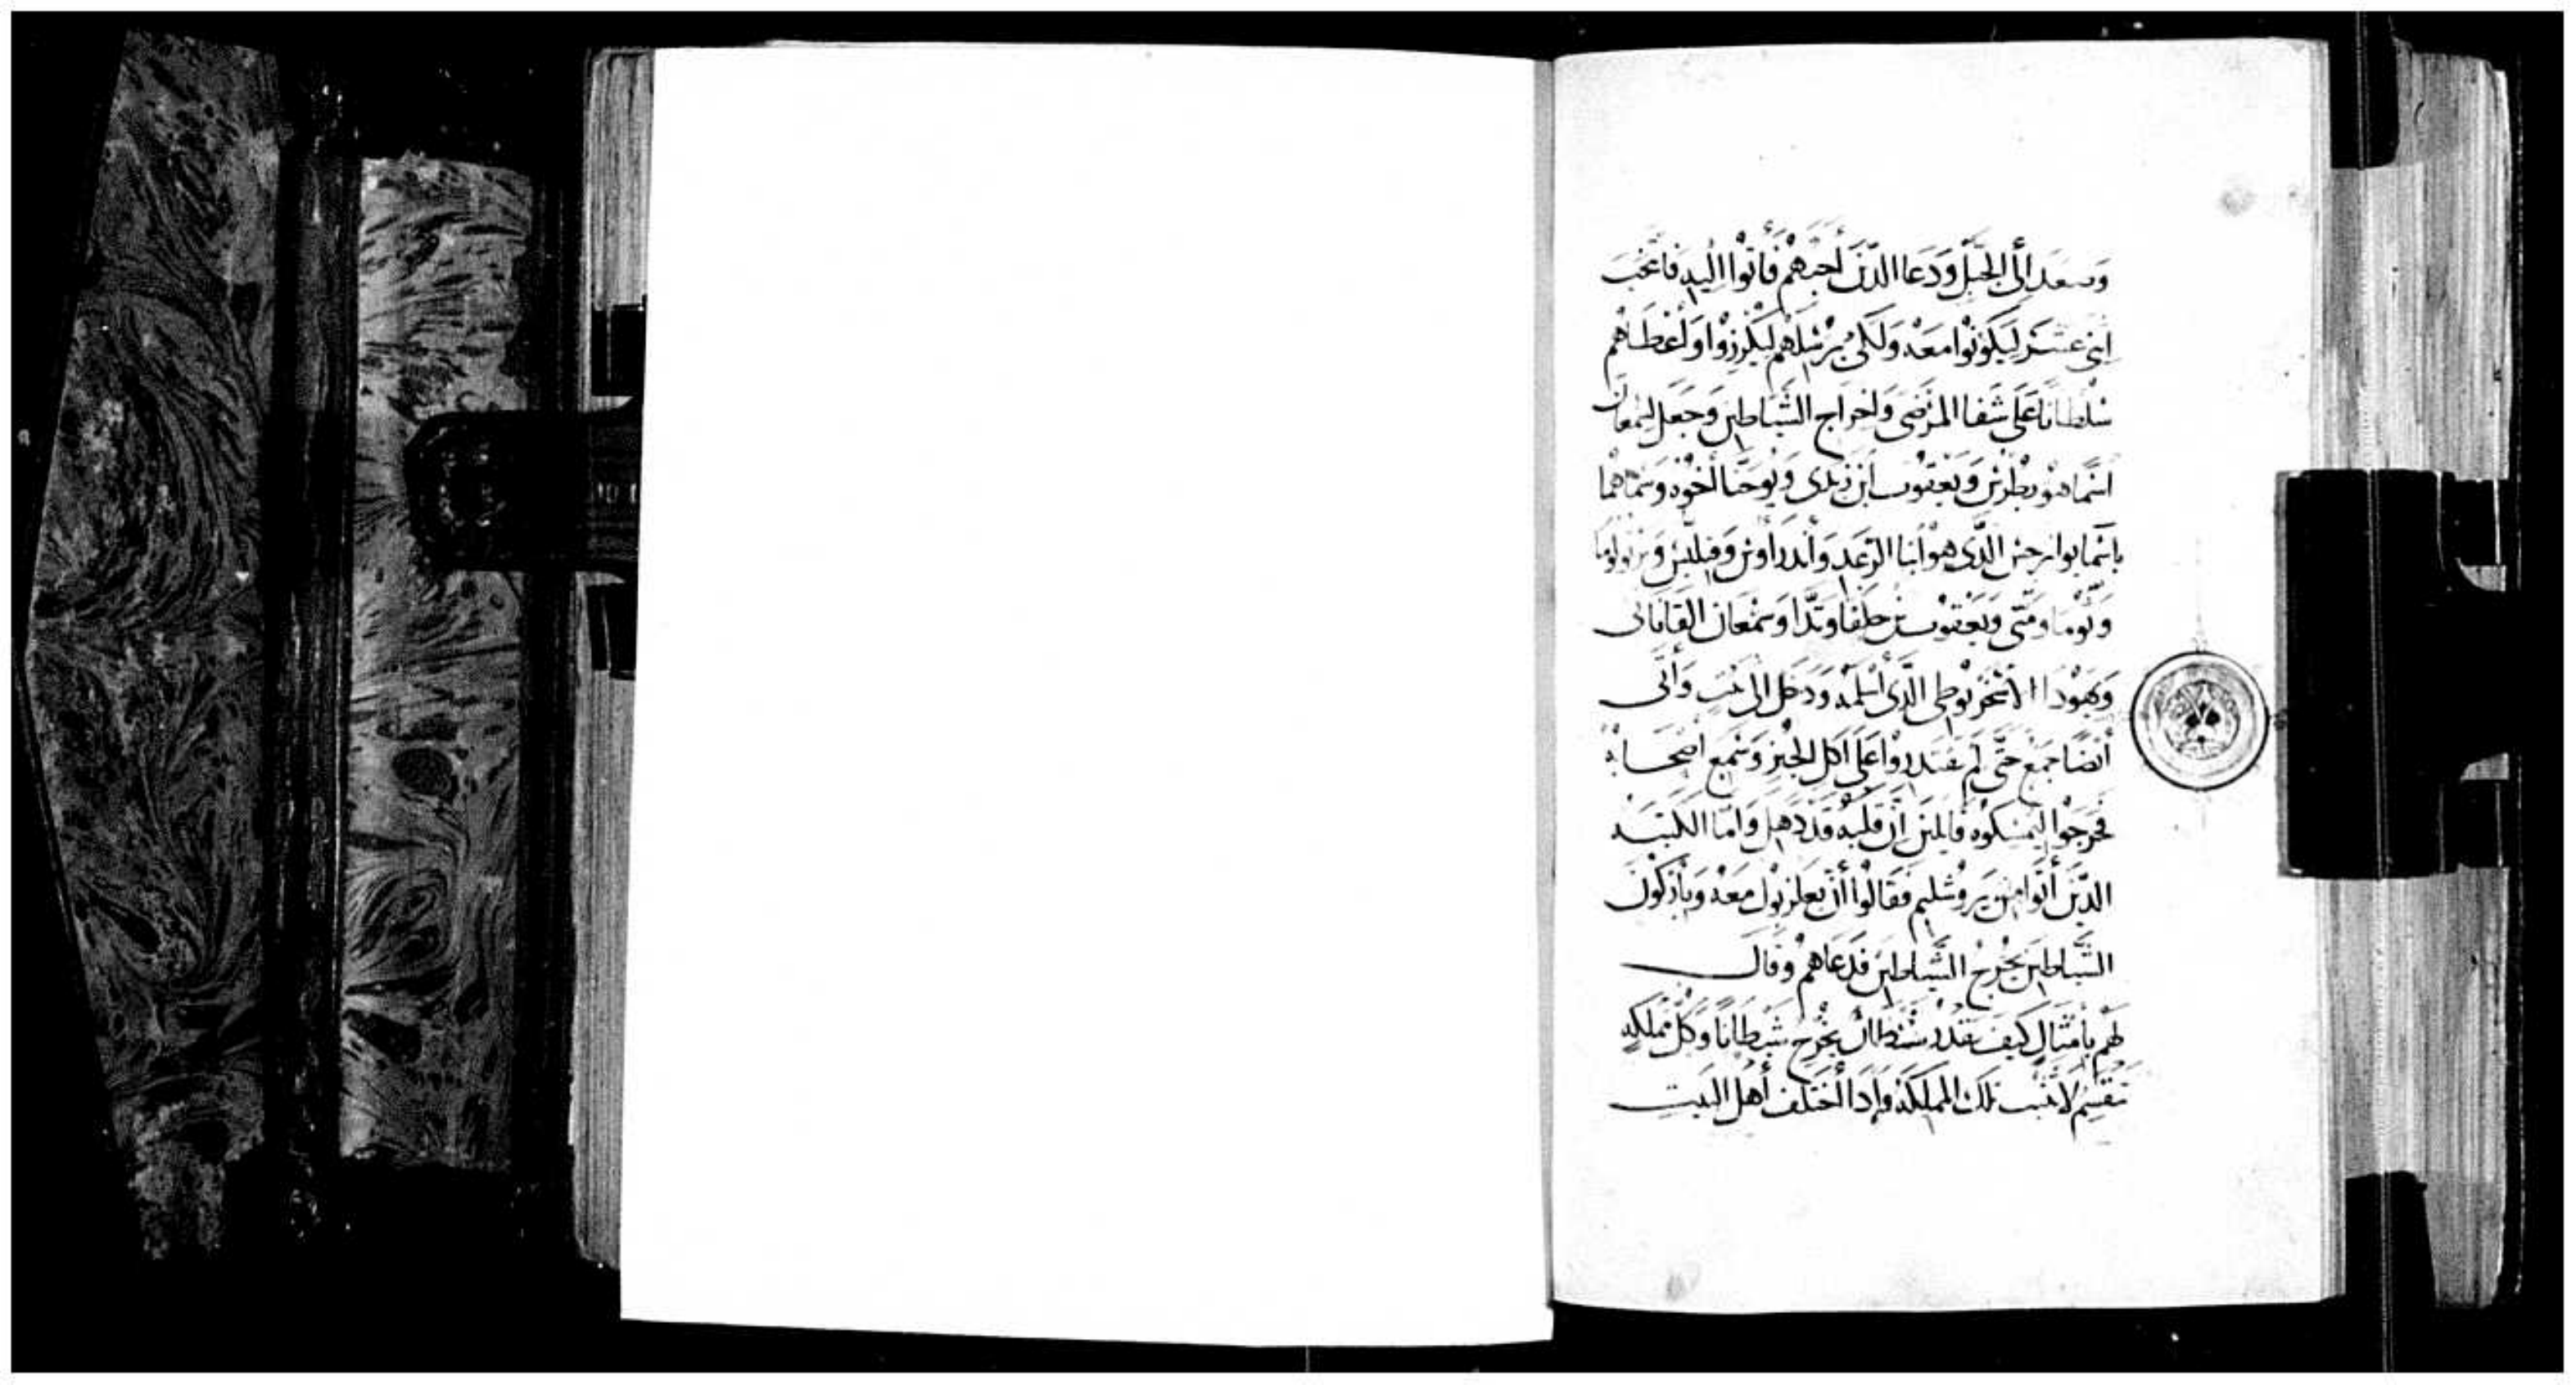 وصعد إلى الجبل ودعا الذين أحبهم فأتوا إليه فانتخب
اثنى عشر ليكونوا معه ولكى يرسلهم ليكرزوا وأعطاهم
سلطانا على شفا المرضى واخراج الشياطين وجعل لسمعان
اسما هو بطرس ويعقوب ابن زبدى ويوحنا أخوه وسماهما
باسما بوانرجس الذى هو ابنا الرعد وأندراوس وفيلبس وبرتولوما
وتوما ومتى ويعقوب بن حلفا وتدا وسمعان القانانى
ويهودا الاسخريوطى الذى أسلمه ودخل إلى بيت وأتى
أيضا جمع حتى لم يقتدروا على اكل الخبز وسمع اصحابه
فخرجوا ليمسكوه قايلين ان قلبه قد ذهل واما الكتبه
الذين أتوا من يروشليم فقالوا أن بعلزبول معه وبأركون
الشياطين يخرج الشياطين فدعاهم وقال
لهم بأمثال كيف يقدر شيطان يخرج شيطانا وكل مملكه
تنقسم لا تثبت تلك المملكة وإذا اختلف أهل البيت